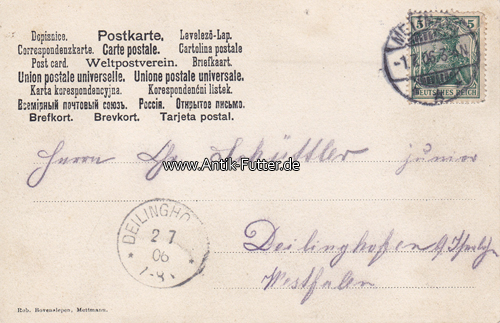 Dopisnice. Postkarte. Levelező-Lap.
Correspondenzkarte. Carte postale. Cartolina postale
Post card. Weltpostverein. Briefkaart.
Union postale universelle. Unione postale universale.
Karta korespondencyjna. Korespondenční listek.
Всемірный почтовый союзъ. Россія. Открытое письмо.
Brefkort. Brevkort. Tarjeta postal.
5
DEUTSCHES REICH
www.Antik-Futter.de
Herrn Schüttler junior
DEILINGHO
2 7
06
Deilinghofen
Westfalen
Rob. Bovensiepen, Mettmann.